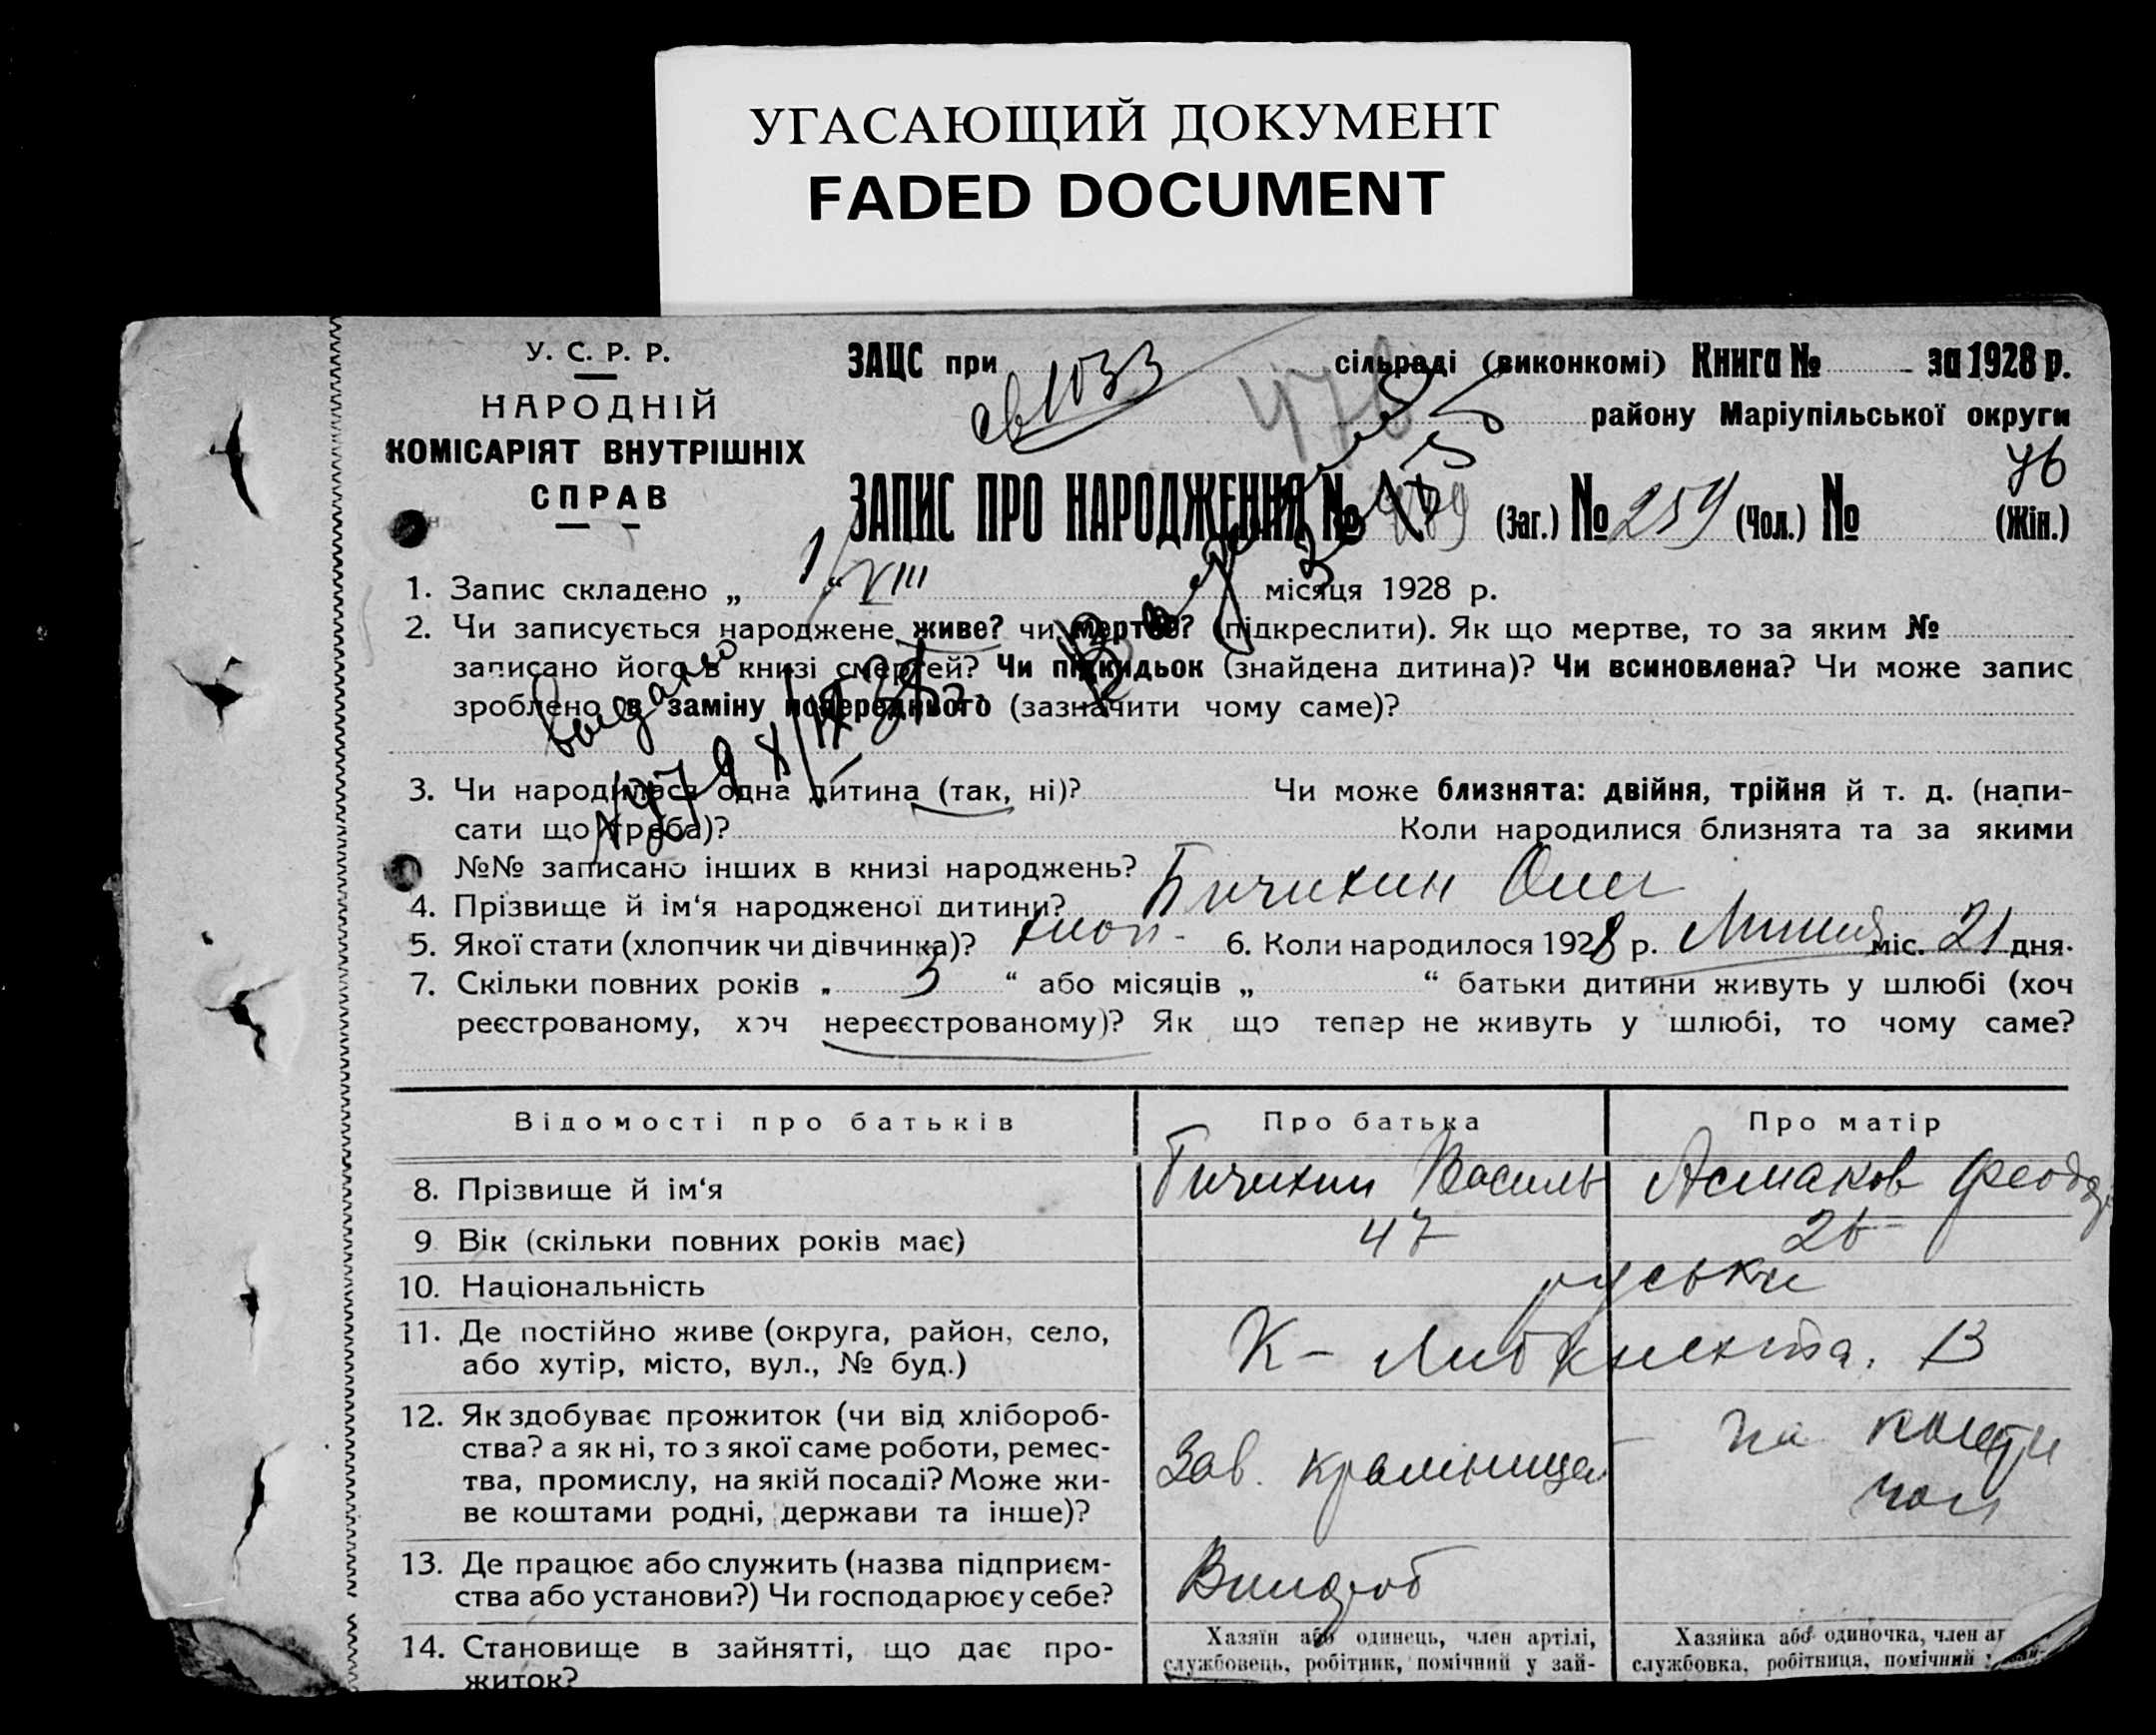 УГАСАЮЩИЙ ДОКУМЕНТ
FADED DOCUMENT
У. С. Р. Р.
НАРОДНІЙ
КОМІСАРІЯТ ВНУТРІШНІХ
СПРАВ
ЗАЦС при сільраді (виконкомі) Книга № за 1928 р.
1033
476
району Маріупільської округи
76
ЗАПИС ПРО НАРОДЖЕННЯ № (Заг.) № 259 (Чол.) № (Жін.)
1. Запис складено „ 1 “ VIII місяця 1928 р.
2. Чи записується народжене живе? чи мертве? (підкреслити). Як що мертве, то за яким №
записано його в книзі смертей? Чи підкидьок (знайдена дитина)? Чи всиновлена? Чи може запис
зроблено в заміну попереднього (зазначити чому саме)?
3. Чи народилася одна дитина (так, ні)? Чи може близнята: двійня, трійня й т. д. (напи-
сати що треба)? Коли народилися близнята та за якими
№№ записано інших в книзі народжень?
4. Прізвище й ім‘я народженої дитини? Бичихин Олег
5. Якої стати (хлопчик чи дівчинка)? хлоп. 6. Коли народилося 1928 р. Липня міс. 21 дня.
7. Скільки повних років „ 3 “ або місяців „ “ батьки дитини живуть у шлюбі (хоч
реєстрованому, хоч нереєстрованому)? Як що тепер не живуть у шлюбі, то чому саме?
Відомості про батьків Про батька Про матір
8. Прізвище й ім‘я Бичихин Василь Асмаков
9 Вік (скільки повних років має) 47
10. Національність руські
11. Де постійно живе (округа, район, село, К- Либкнехта. 13
або хутір, місто, вул., № буд.)
12. Як здобуває прожиток (чи від хлібороб-
ства? а як ні, то з якої саме роботи, ремес-
тва, промислу, на якій посаді? Може жи- Зав. крамницей на кошти
ве коштами родні, держави та інше)? чол
13. Де працює або служить (назва підприєм-
ства або установи?) Чи господарює у себе?
14. Становище в зайнятті, що дає про-
житок?
Хазяїн або одинець, член артілі,
службовець, робітник, помічний у зай-
Хазяйка або одиночка, член ар
службовка, робітниця, помічний